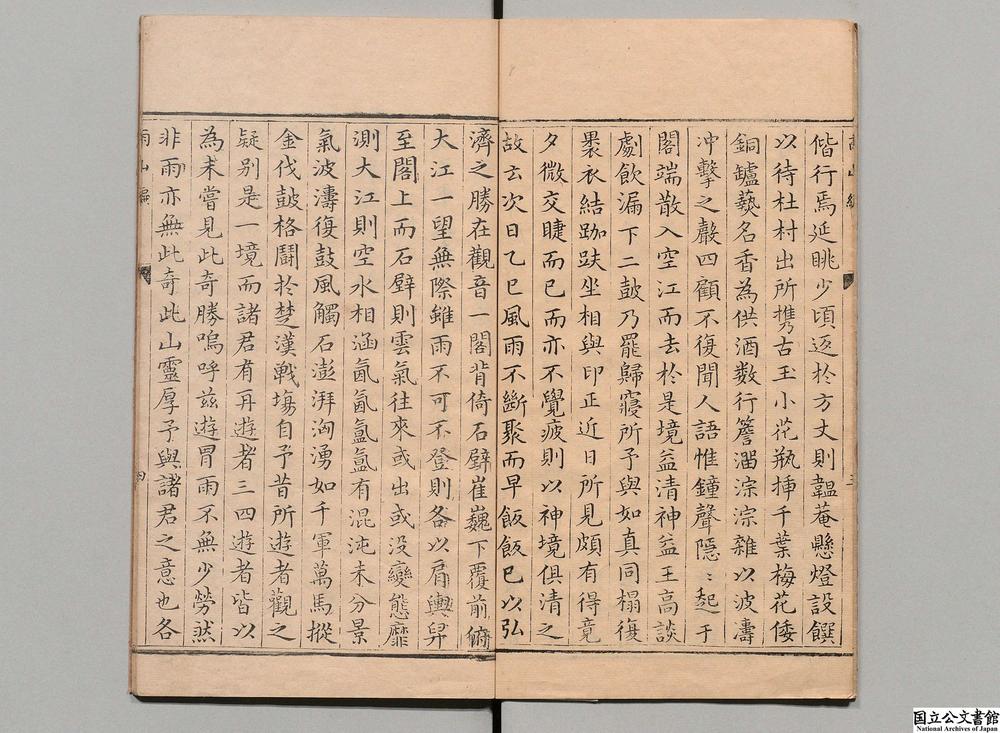 偕行焉延眺少頃返於方丈則韞菴懸燈設饌
以待杜村出所攜古玉小花瓶挿千葉梅花倭
銅鑪爇名香為供酒数行簷溜淙淙雜以波濤
冲擊之聲四顧不復聞人語惟鐘聲隱〻起于
閣端散入空江而去於是境益清神益王高談
劇飲漏下二鼓乃罷歸寢所予與如真同榻復
褁衣結跏趺坐相與印正近日所見頗有得竟
夕微交睫而已而亦不覺疲則以神境俱清之
故云次日乙巳風雨不斷聚而早飯飯已以弘
濟之勝在觀音一閣背倚石壁崔巍下覆前俯
大江一望無際雖雨不可不登則各以肩輿舁
至閣上而石壁則雲氣往來或出或没變態靡
測大江則空水相涵氤氤氳氳有混沌未分景
氣波濤復鼓風觸石澎湃洶湧如千軍萬馬摐
金伐鼓格鬪於楚漢戰塲自予昔所遊者觀之
疑别是一境而諸君有再遊者三四遊者皆以
為未嘗見此奇勝嗚呼兹遊冒雨不無少勞然
非雨亦無此奇此山靈厚予與諸君之意也各
四
国立公文書館
National Archives of Japan